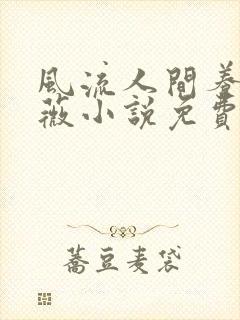 風流人間養
薇小說免費
蕎豆麦袋